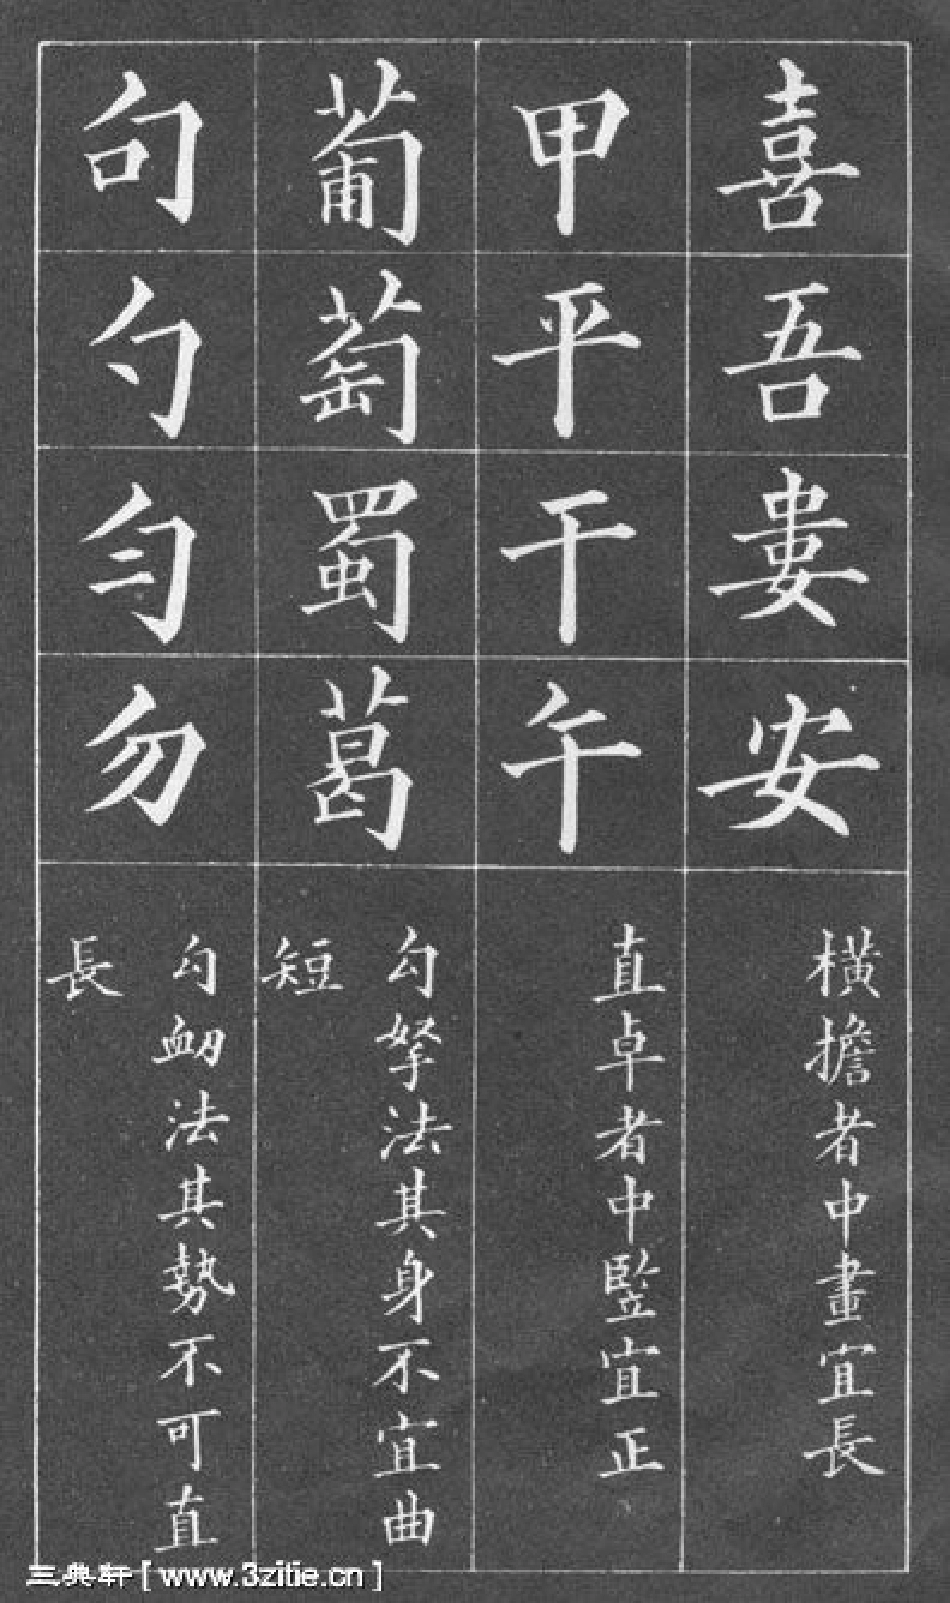 喜吾婁安
橫擔者中畫宜長
甲平干午
直卓者中豎宜正
葡萄蜀葛
勾拏法其身不宜曲
短
句勺勻勿
勾衂法其勢不可直
長
三典轩[www.3zitie.cn]